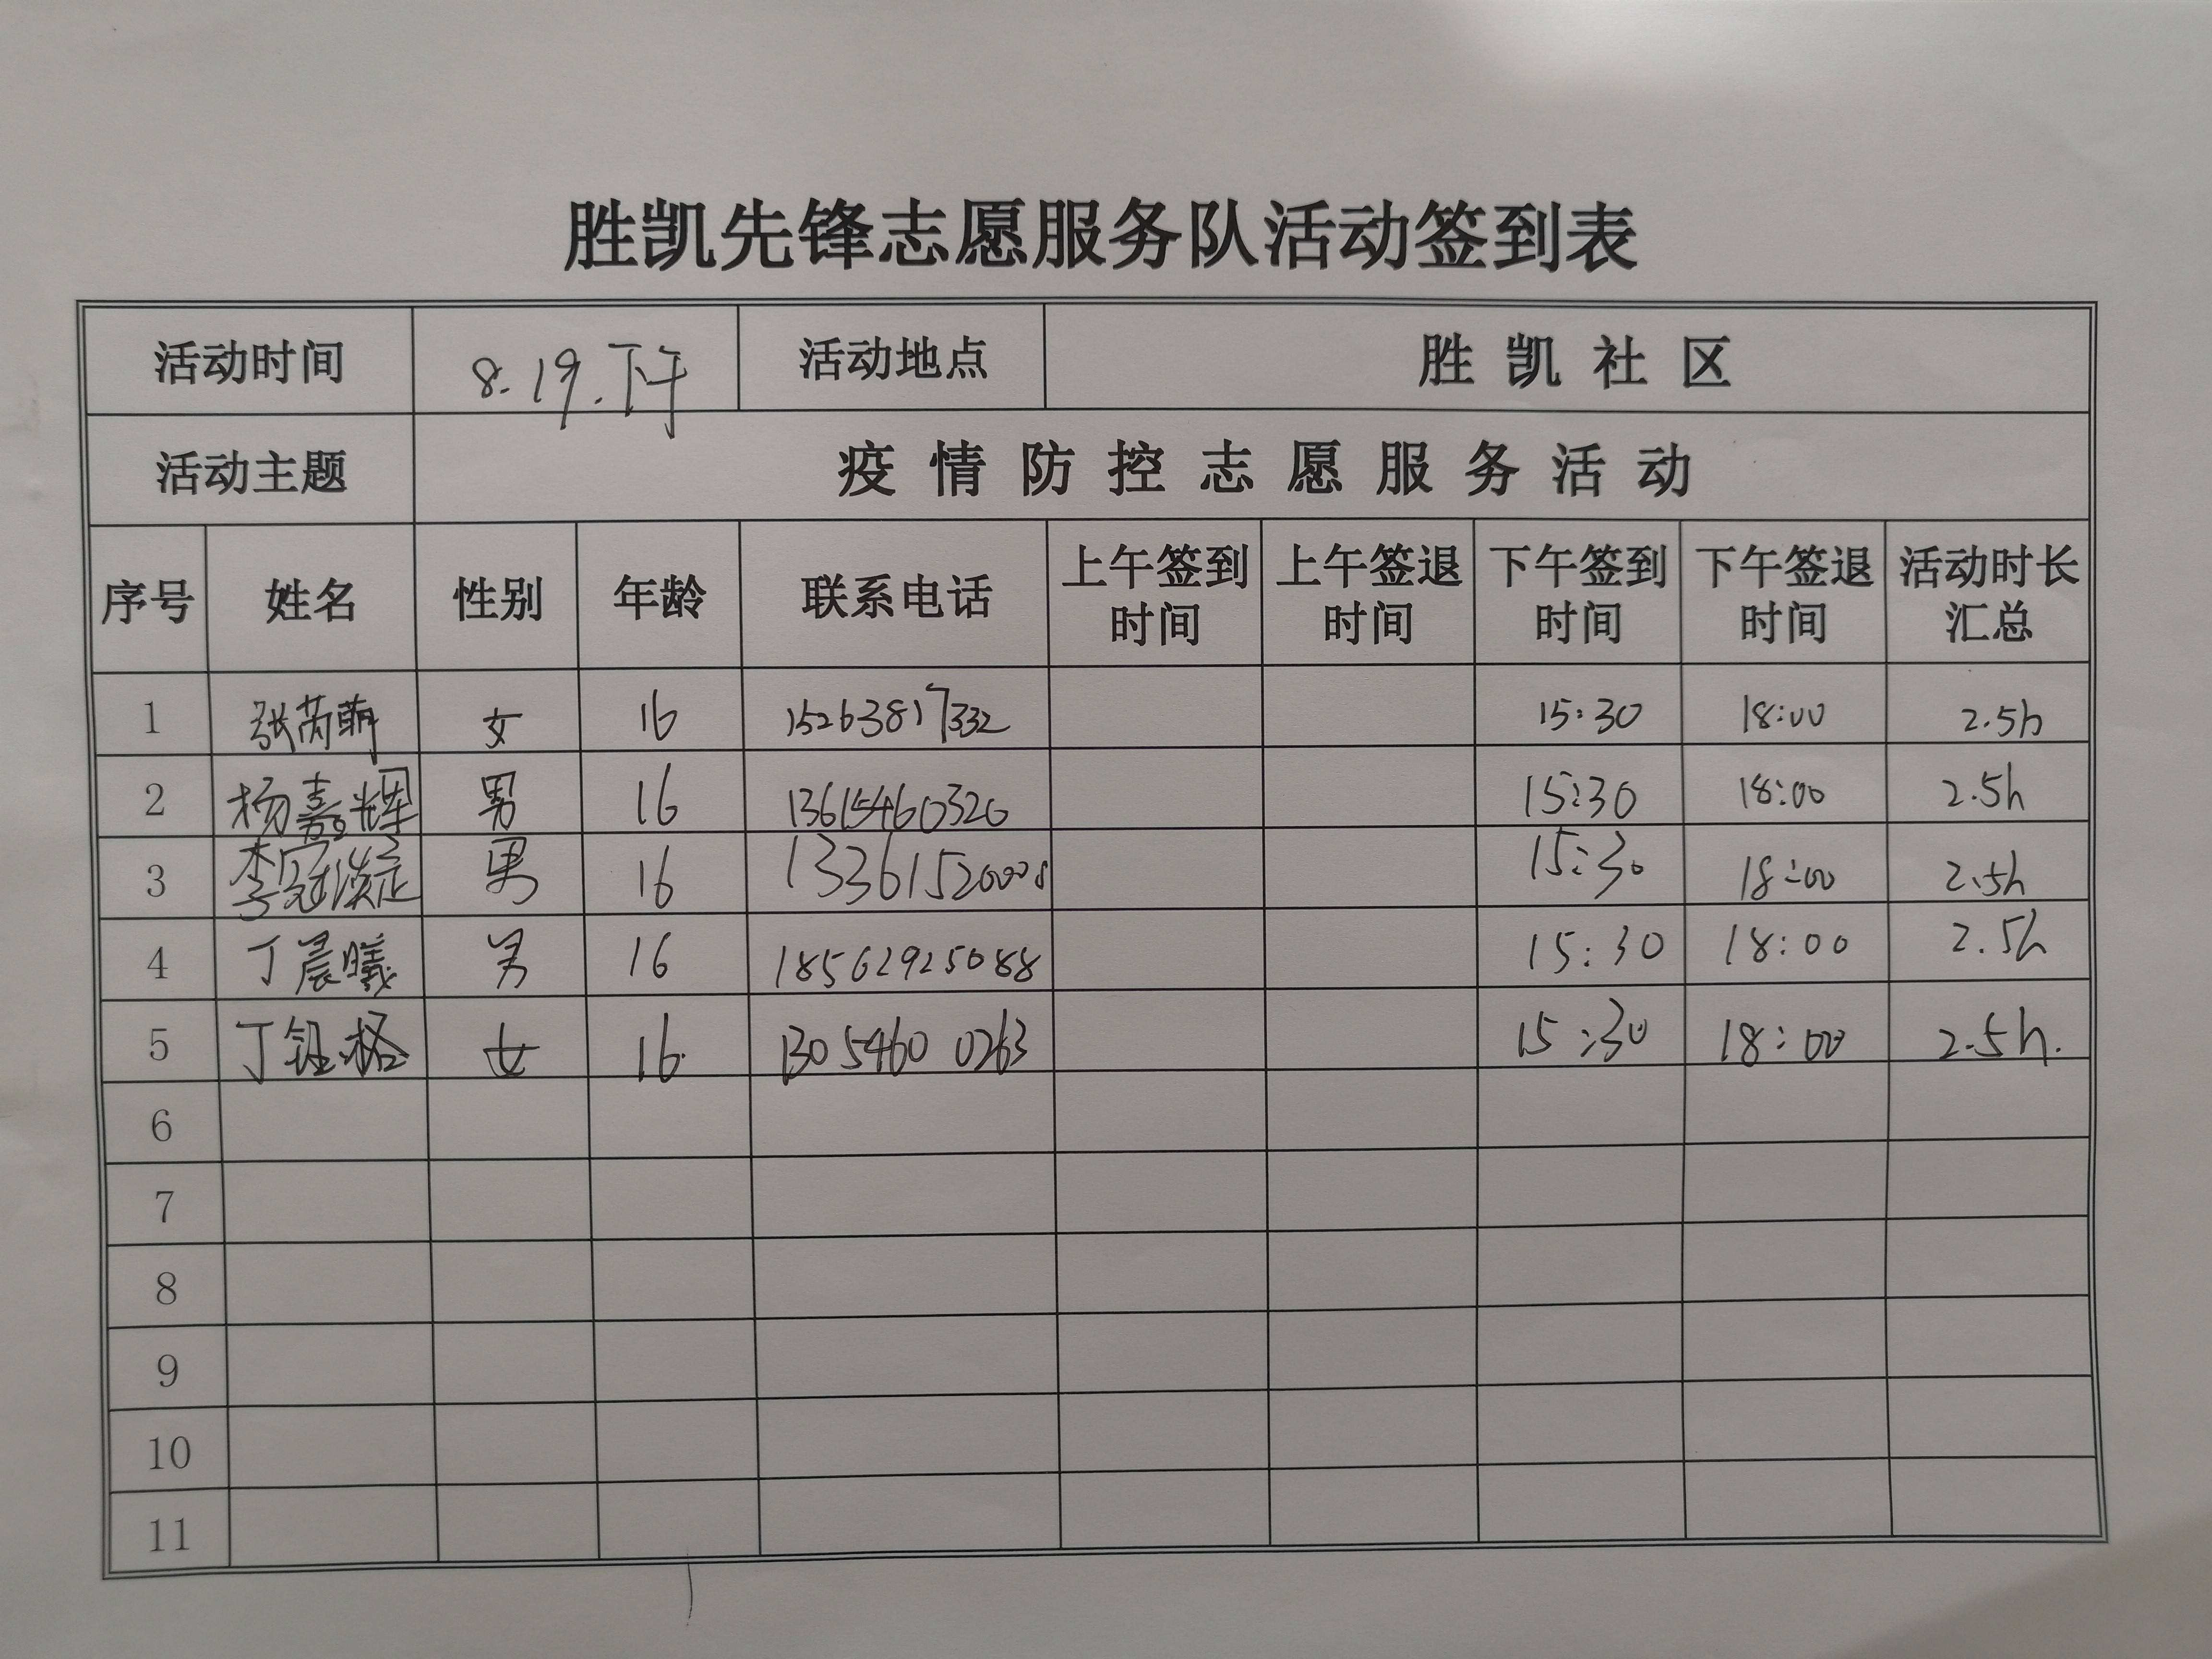 胜凯先锋志愿服务队活动签到表
活动时间 8.19.下午 活动地点 胜凯社区
活动主题 疫情防控志愿服务活动
序号 姓名 性别 年龄 联系电话 上午签到时间 上午签退时间 下午签到时间 下午签退时间 活动时长汇总
1 张芮萌 女 16 15263817332 15:30 18:00 2.5h
2 杨嘉辉 男 16 13615460320 15:30 18:00 2.5h
3 男 16 15:30 18:00 2.5h
4 丁晨曦 男 16 18562925088 15:30 18:00 2.5h
5 丁钰格 女 16 1305460 0263 15:30 18:00 2.5h.
6
7
8
9
10
11